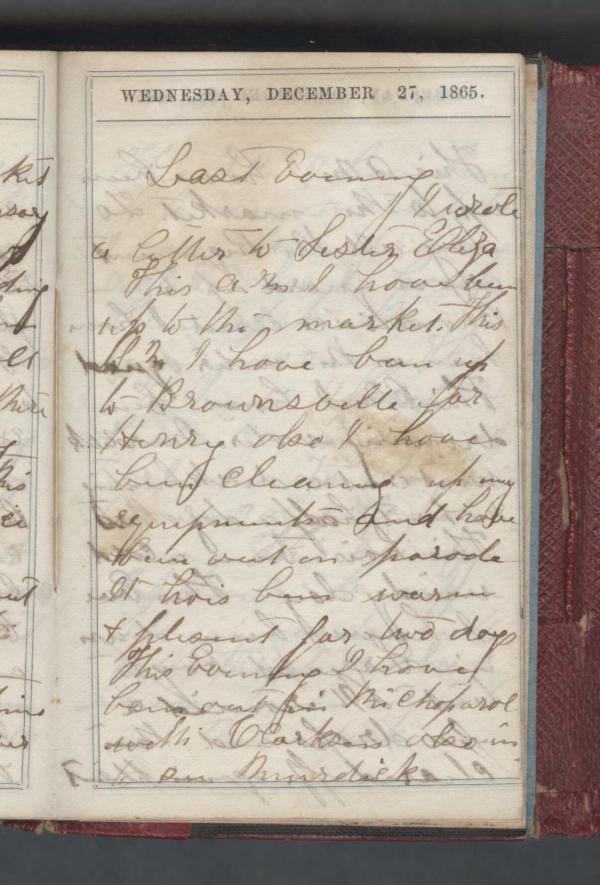 WEDNESDAY, DECEMBER 27, 1865.
Last Evening
I wrote
a letter to Sister Eliza
This A.M I have ben
up to the market. This
P.M I have ben up
to Brownsville for
Henry also I have
ben cleaning up my
equipments and have
ben out on parade
It has ben warm
& plesent for two days
This Evening I have
ben out in the Choparol
with Clarkson also in
to see Burdick